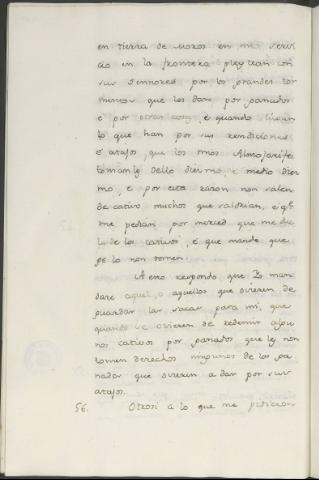 en tierra de Moros en mi servi
cio en la frontera pleytean con
sus Sennores por los grandes tor
mentos que les dan por ganados
e por otras cosas, e quando lievan
lo que han por sus rendiciones
e atajos, que los mios Almojarifes
tomanles dello diezmo, e medio diez
mo, e por esta razon non salen
de cativo muchos que saldrian, e q.
me pedian por merced que me do
liese de los cativos, e que mande que
ge lo non tomen.
A esto respondo que Yo man
dare aquel o aquellos que ovieren de
guardar las sacas para mi, que
quando se ovieren de redemir algu
nos cativos por ganados que les non
tomen derechos ningunos de los ga
nados que ovieren a dar por sus
atajos.
56. Otrosi a lo que me pidieron